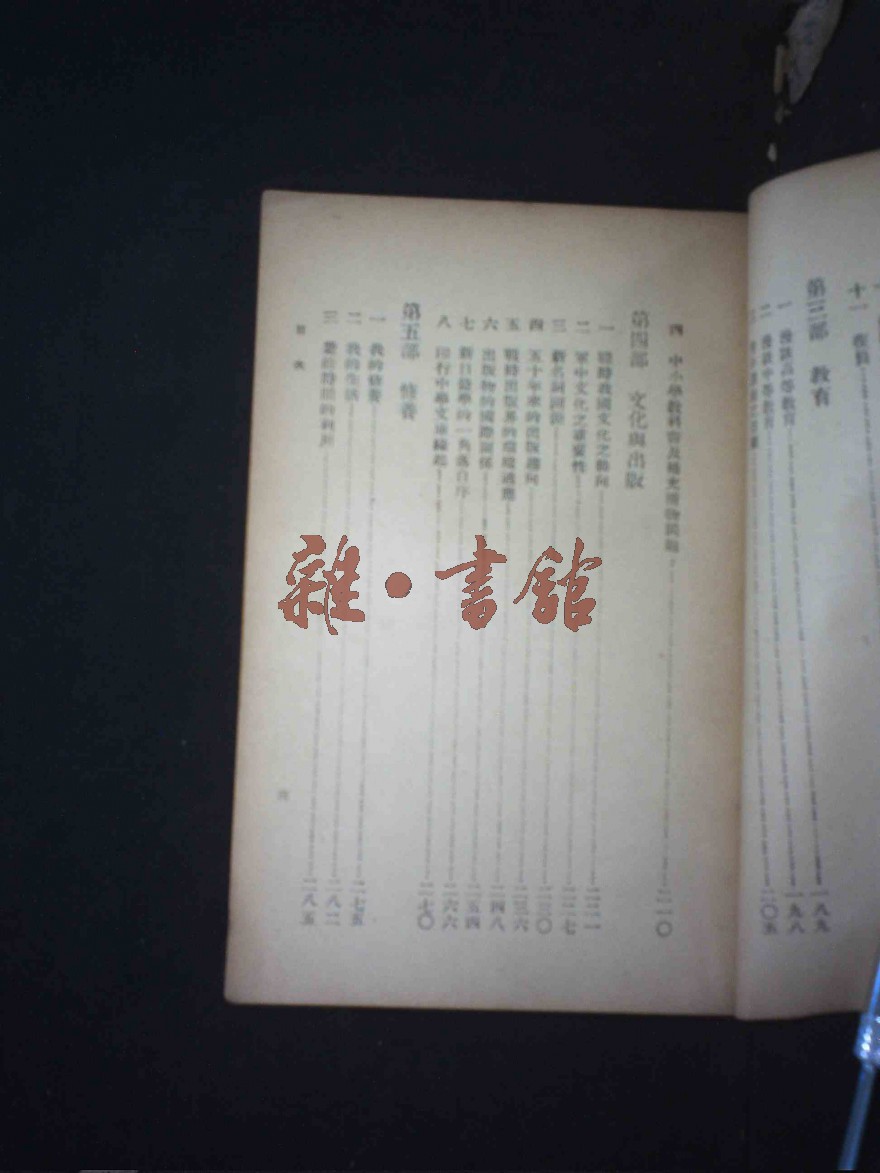 十一
第三部 教育
一 漫談高等教育 一八九
二 漫談中等教育 一九八
二〇五
四 中小學教科書及補充讀物問題 二一〇
第四部 文化與出版
一 戰時我國文化之動向 二二一
二 軍中文化之重要性 二二七
三 新名詞溯源 二三〇
四 五十年來的出版趨向 二三六
五 戰時出版界的環境適應 二四八
六 出版物的國際關係 二五四
七 新目錄學的一角落自序 二六六
八 印行中學文庫緣起 二七〇
第五部 修養
一 我的修養 二七五
二 我的生活 二八二
三 業餘時間的利用 二八五
目次
四
雜·書館